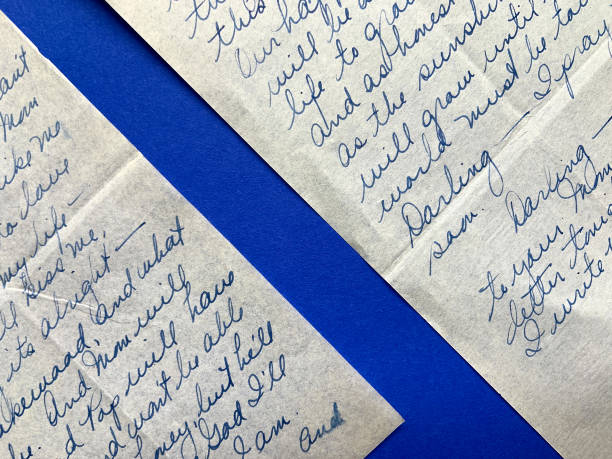 Mom
like me
to love
my life —
kiss me,
it's alright —
Lakewood, and what
And Mom will
Pop will have
and won't be able
honey, but he'll
God I'll
I am. and
this
Our ha
will be
life to grow
and as honest
as the sunshine
will grow until
world must be to
Darling — I pray
soon. Darling —
to your Mom
letter
I write